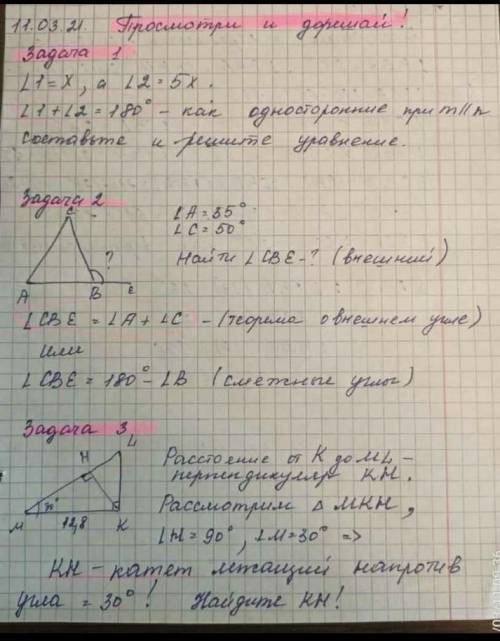 11.03.21. Просмотри и дорешай!
Задача 1
∠1=x, а ∠2=5x.
∠1+∠2=180° - как односторонние при m||n
составьте и решите уравнение.
Задача 2
C
∠A=35°
∠C=50°
Найти ∠CBE-? (внешний)
?
A B E
∠CBE = ∠A + ∠C - (теорема о внешнем угле)
или
∠CBE = 180° - ∠B (смежные углы)
Задача 3
L
H
Расстояние от K до ML -
перпендикуляр KH.
30°
M 12,8 K
Рассмотрим △ MKH,
∠H=90°, ∠M=30° =>
KH - катет лежащий напротив
угла = 30°! Найдите KH!